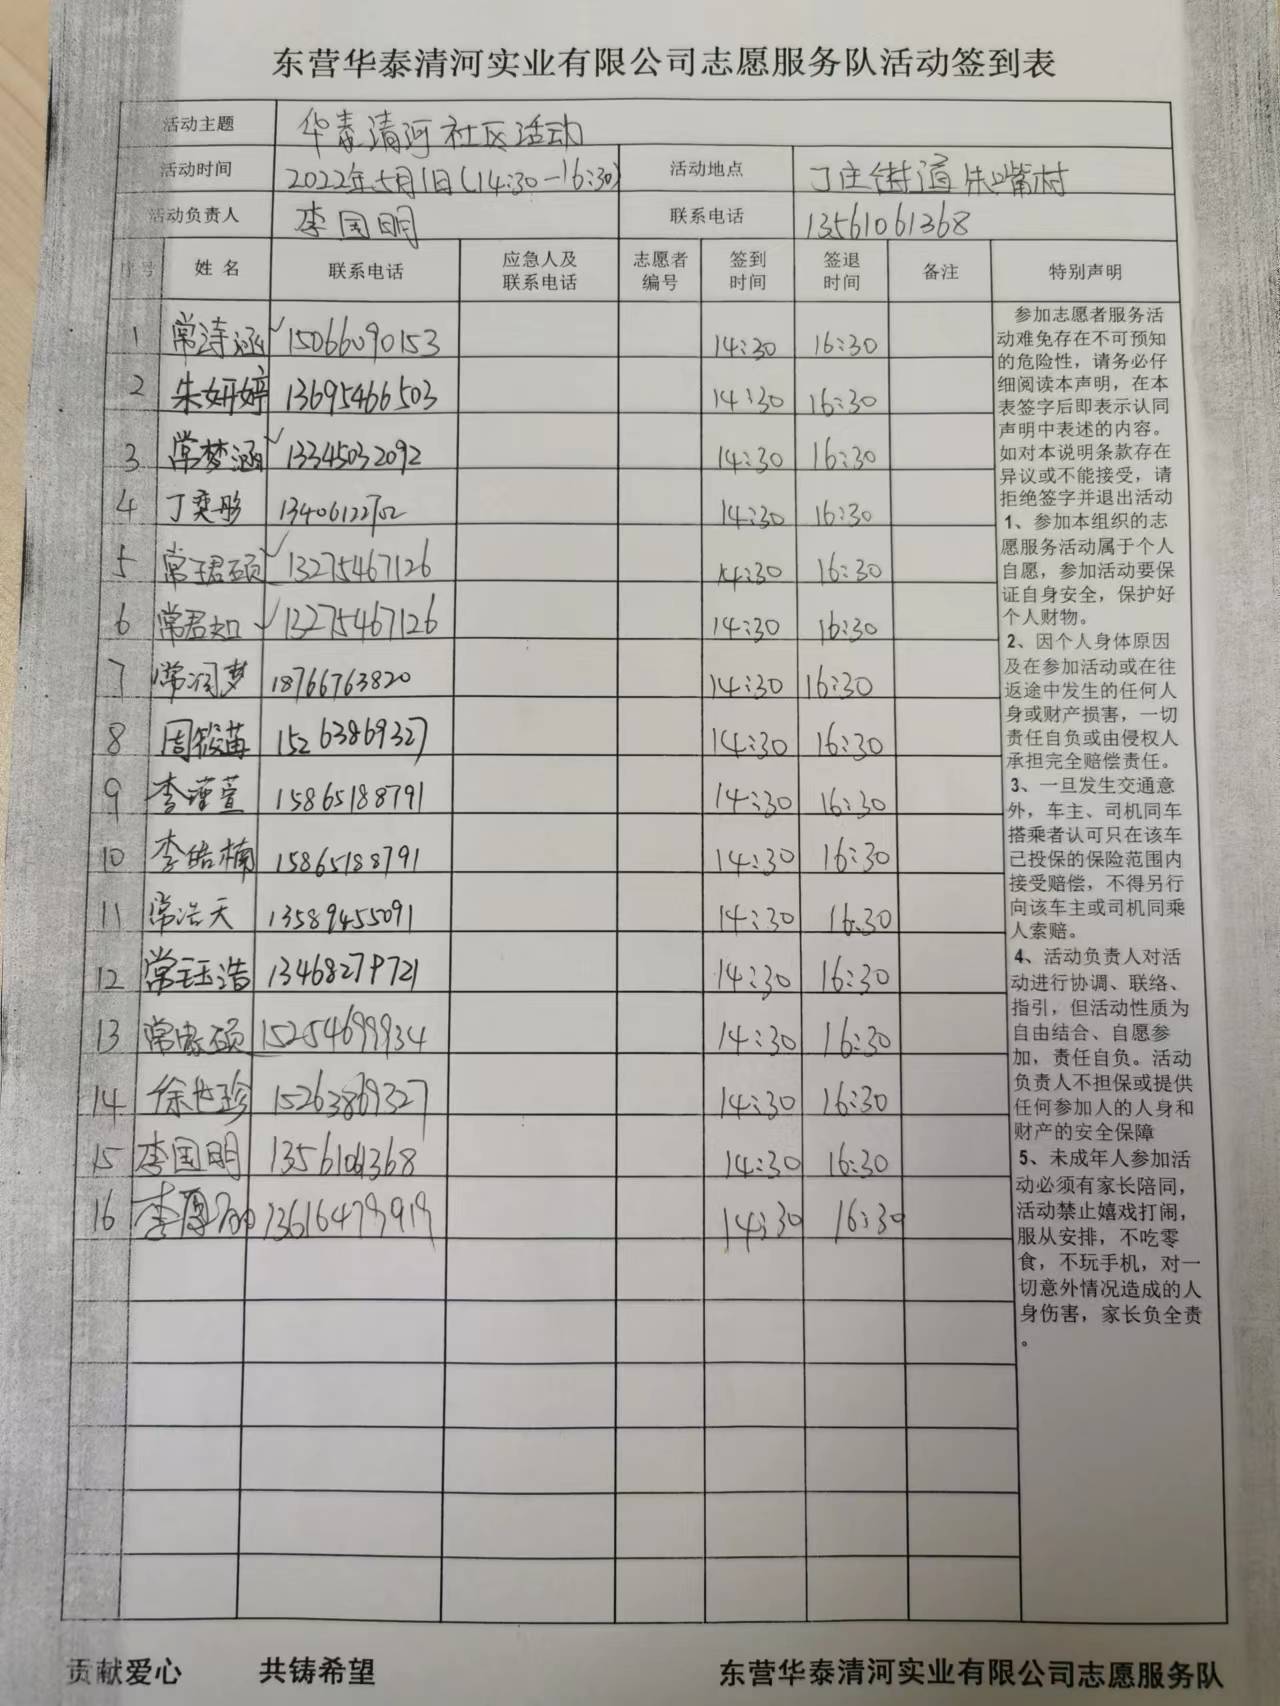 东营华泰清河实业有限公司志愿服务队活动签到表
活动主题 华泰清河社区活动
活动时间 2022年5月1日(14:30-16:30) 活动地点 丁庄街道朱嘴村
活动负责人 李国明 联系电话 13561061368
序号 姓名 联系电话 应急人及联系电话 志愿者编号 签到时间 签退时间 备注 特别声明
1 常涛涵 15066090153 14:30 16:30
2 朱妍婷 13695466503 14:30 16:30
3 常梦涵 13345032092 14:30 16:30
4 丁奕彤 13406122702 14:30 16:30
5 常珺硕 13275467126 14:30 16:30
6 常君如 13275467126 14:30 16:30
7 常润梦 18766763820 14:30 16:30
8 周筱苗 15263869327 14:30 16:30
9 李瑾萱 15865188791 14:30 16:30
10 李皓楠 15865188791 14:30 16:30
11 常浩天 13589455091 14:30 16:30
12 常钰浩 13468279721 14:30 16:30
13 常家硕 15254699934 14:30 16:30
14 徐世珍 15263869327 14:30 16:30
15 李国明 13561061368 14:30 16:30
16 13616479919 14:30 16:30
参加志愿者服务活
动难免存在不可预知
的危险性，请务必仔
细阅读本声明，在本
表签字后即表示认同
声明中表述的内容。
如对本说明条款存在
异议或不能接受，请
拒绝签字并退出活动
1、参加本组织的志
愿服务活动属于个人
自愿，参加活动要保
证自身安全，保护好
个人财物。
2、因个人身体原因
及在参加活动或在往
返途中发生的任何人
身或财产损害，一切
责任自负或由侵权人
承担完全赔偿责任。
3、一旦发生交通意
外，车主、司机同车
搭乘者认可只在该车
已投保的保险范围内
接受赔偿，不得另行
向该车主或司机同乘
人索赔。
4、活动负责人对活
动进行协调、联络、
指引，但活动性质为
自由结合、自愿参
加，责任自负。活动
负责人不担保或提供
任何参加人的人身和
财产的安全保障
5、未成年人参加活
动必须有家长陪同，
活动禁止嬉戏打闹，
服从安排，不吃零
食，不玩手机，对一
切意外情况造成的人
身伤害，家长负全责
。
贡献爱心 共铸希望 东营华泰清河实业有限公司志愿服务队